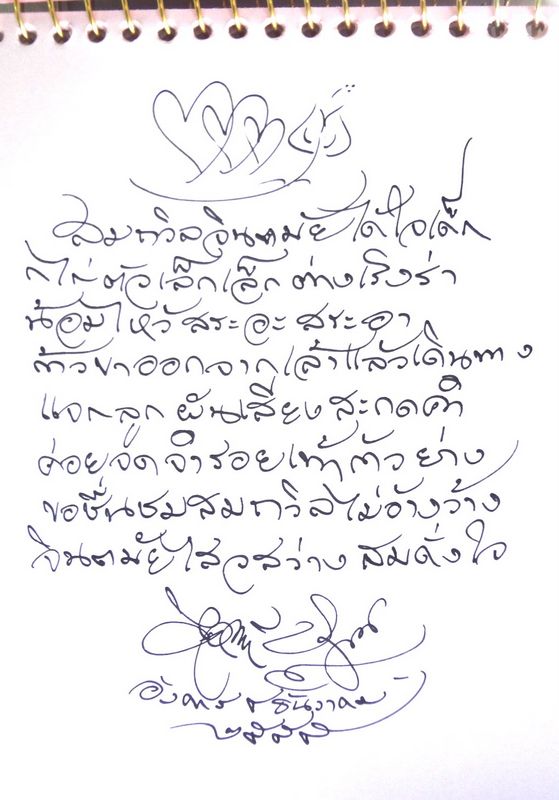 สมถวิลจินตมัยได้ใจเด็ก
ก ไก่ ตัวเล็กเล็ก ต่างเริงร่า
น้อมไหว้ สระอะ สระอา
ก้าวขาออกจากเล้าแล้วเดินทาง
แจกลูก ผันเสียง สะกดคำ
ค่อยจดจำรอยเท้าก้าวย่าง
ขอชื่นชมสมถวิลไม่อ้างว้าง
จินตมัยไสวสว่าง สมดั่งใจ
อังคาร ๘ ธันวาคม
๒๕๕๘